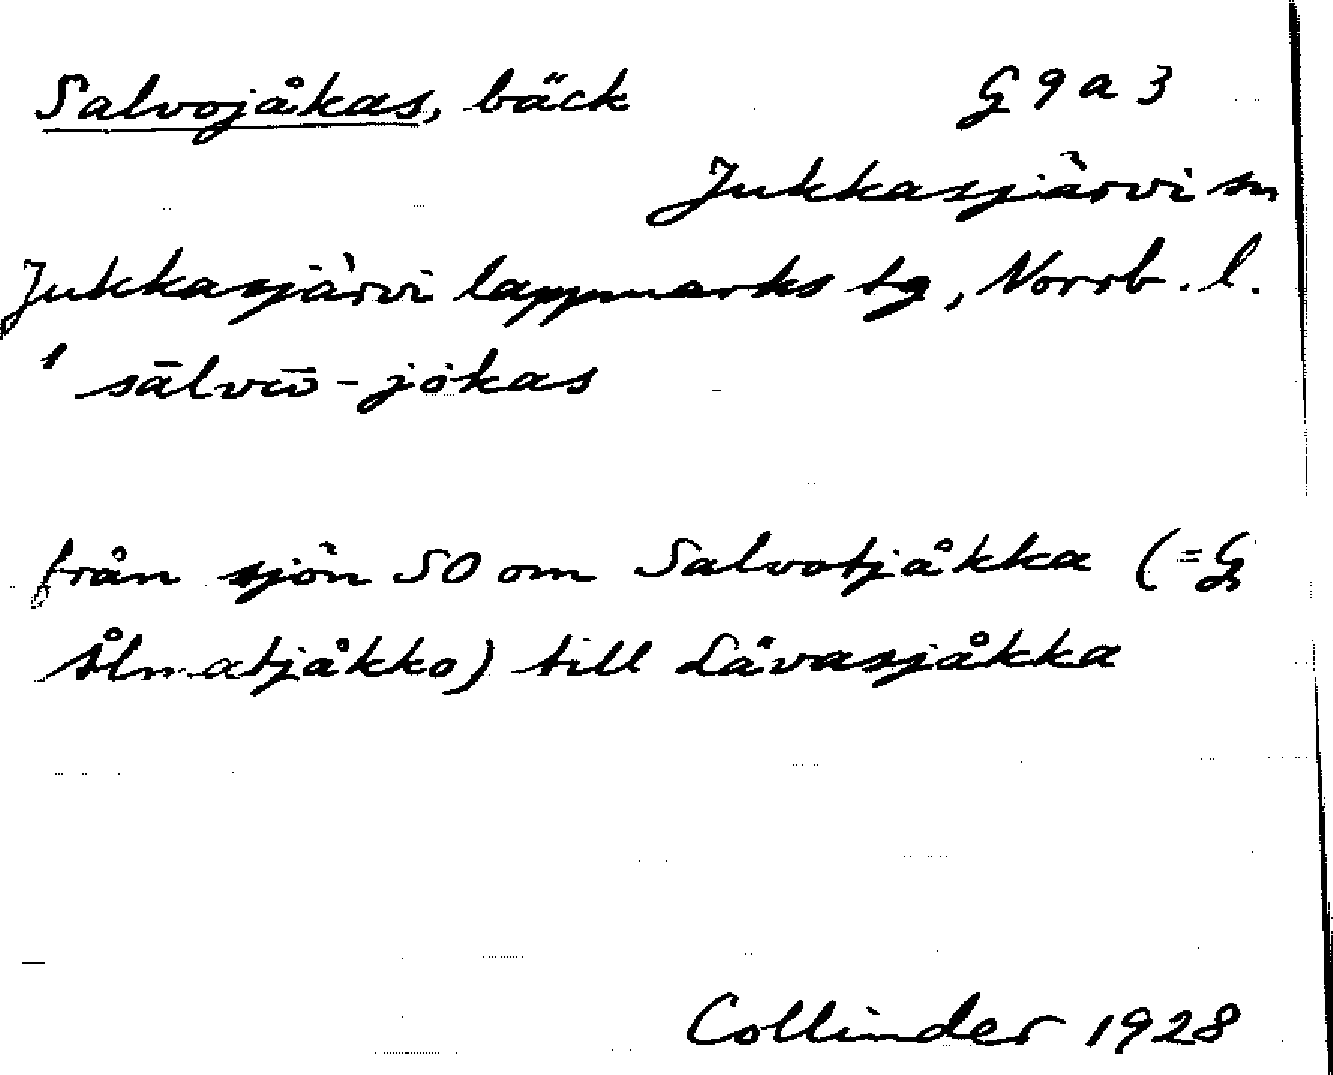 Salvojåkas, bäck G 9 a 3
Jukkasjärvi sn
Jukkasjärvi lappmarks tg, Norrb. l.
' sālvō-jokas
från sjön SO om Salvotjåkka (= G
Ålmatjåkko) till Låvasjåkka
Collinder 1928